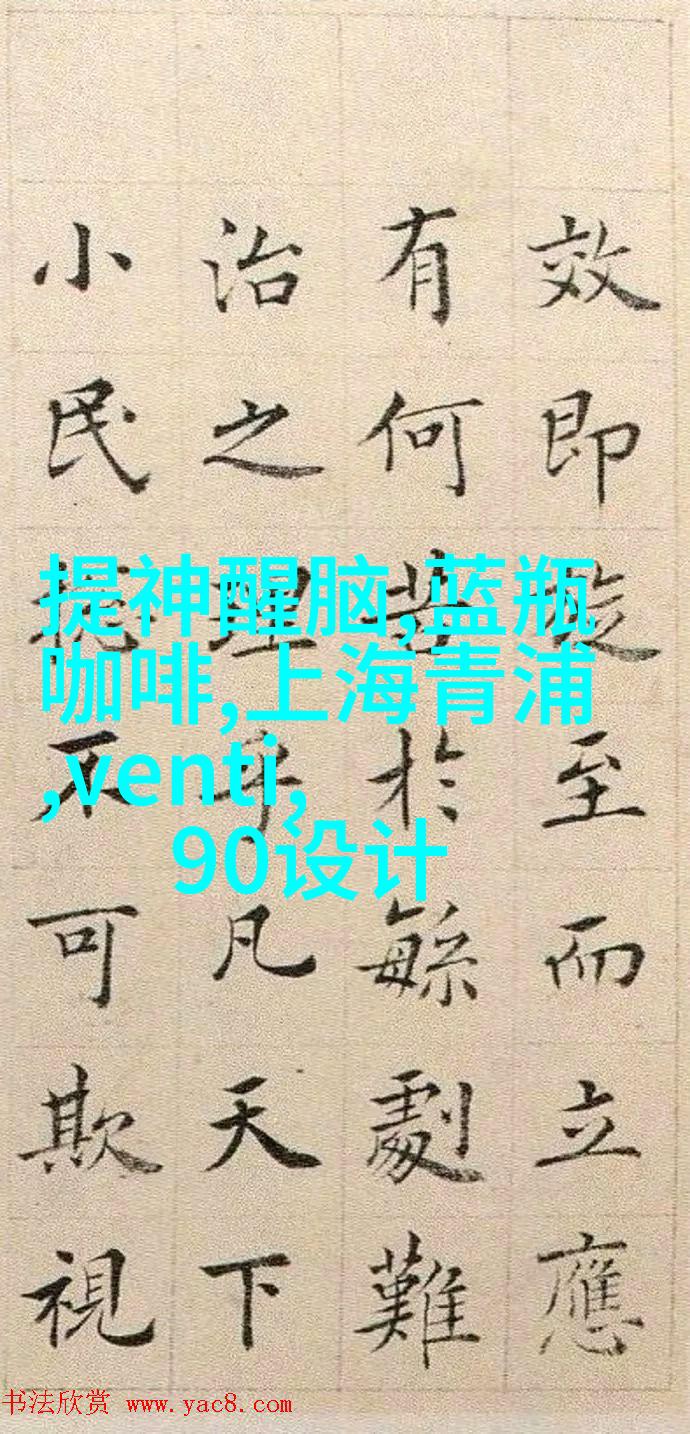 效即旋至而立應
有何苦於緐劇難
治之理乎凡天下
小民不可欺視
提神醒脑,蓝瓶
咖啡,上海青浦
,venti,
90设计
书法欣赏 www.yac8.com